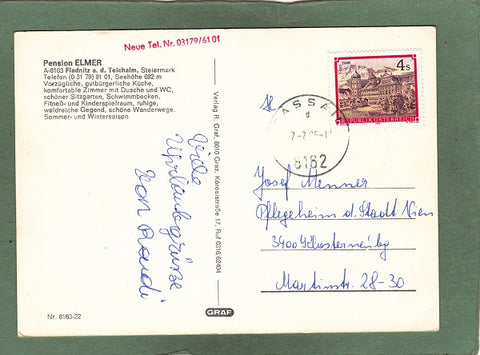 Neue Tel. Nr. 03179/6101
Pension ELMER
A-8163 Fladnitz a. d. Teichalm, Steiermark
Telefon (0 31 79) 91 01, Seehöhe 692 m
Vorzügliche, gutbürgerliche Küche,
komfortable Zimmer mit Dusche und WC,
schöner Sitzgarten, Schwimmbecken,
Fitneß- und Kinderspielraum, ruhige,
waldreiche Gegend, schöne Wanderwege.
Sommer- und Wintersaison
Viele
Urlaubsgrüße
von
Verlag R. Graf, 8010 Graz, Körösistraße 17, Ruf 0316/62404
GRAF
4s
REPUBLIK ÖSTERREICH
PASSAIL
8162
Josef Menner
Pflegeheim d. Stadt Wien
3400 Klosterneubg
Martinstr. 28-30
Nr. 8163-22